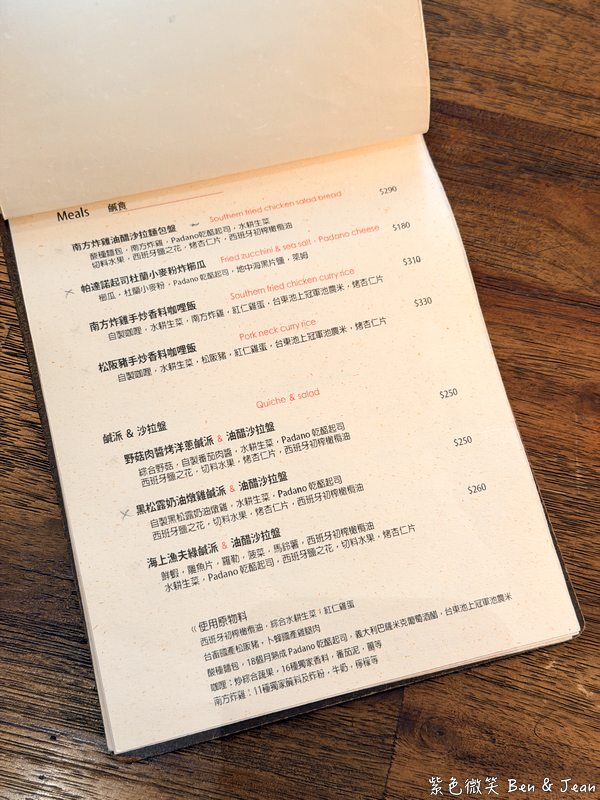 Meals 鹹食
南方炸雞油醋沙拉麵包盤 Southern fried chicken salad bread $290
酸種麵包，南方炸雞，Padano乾酪起司，水耕生菜
切料水果，西班牙鹽之花，烤杏仁片，西班牙初榨橄欖油
帕達諾起司杜蘭小麥粉炸櫛瓜 Fried zucchini & sea salt，Padano cheese $180
櫛瓜，杜蘭小麥粉，Padano 乾酪起司，地中海黑片鹽，萊姆
南方炸雞手炒香料咖哩飯 Southern fried chicken curry rice $310
自製咖哩，水耕生菜，南方炸雞，紅仁雞蛋，台東池上冠軍池農米，烤杏仁片
松阪豬手炒香料咖哩飯 Pork neck curry rice $330
自製咖哩，水耕生菜，松阪豬，紅仁雞蛋，台東池上冠軍池農米，烤杏仁片
鹹派 & 沙拉盤 Quiche & salad
野菇肉醬烤洋蔥鹹派 & 油醋沙拉盤 $250
綜合野菇，自製番茄肉醬，水耕生菜，Padano 乾酪起司
西班牙鹽之花，切料水果，烤杏仁片，西班牙初榨橄欖油
黑松露奶油燉雞鹹派 & 油醋沙拉盤 $250
自製黑松露奶油燉雞，水耕生菜，Padano 乾酪起司
西班牙鹽之花，切料水果，烤杏仁片，西班牙初榨橄欖油
海上漁夫綠鹹派 & 油醋沙拉盤 $260
鮮蝦，鯛魚片，羅勒，菠菜，馬鈴薯，西班牙初榨橄欖油
水耕生菜，Padano 乾酪起司，西班牙鹽之花，切料水果，烤杏仁片
《 使用原物料
西班牙初榨橄欖油，綜合水耕生菜，紅仁雞蛋
台畜國產松阪豬，卜蜂國產雞腿肉
酸種麵包，18個月熟成 Padano 乾酪起司，義大利巴薩米克葡萄酒醋，台東池上冠軍池農米
咖哩：炒綜合蔬果，16種獨家香料，番茄泥，薑等
南方炸雞：11種獨家醃料及炸粉，牛奶，檸檬等
紫色微笑 Ben & Jean